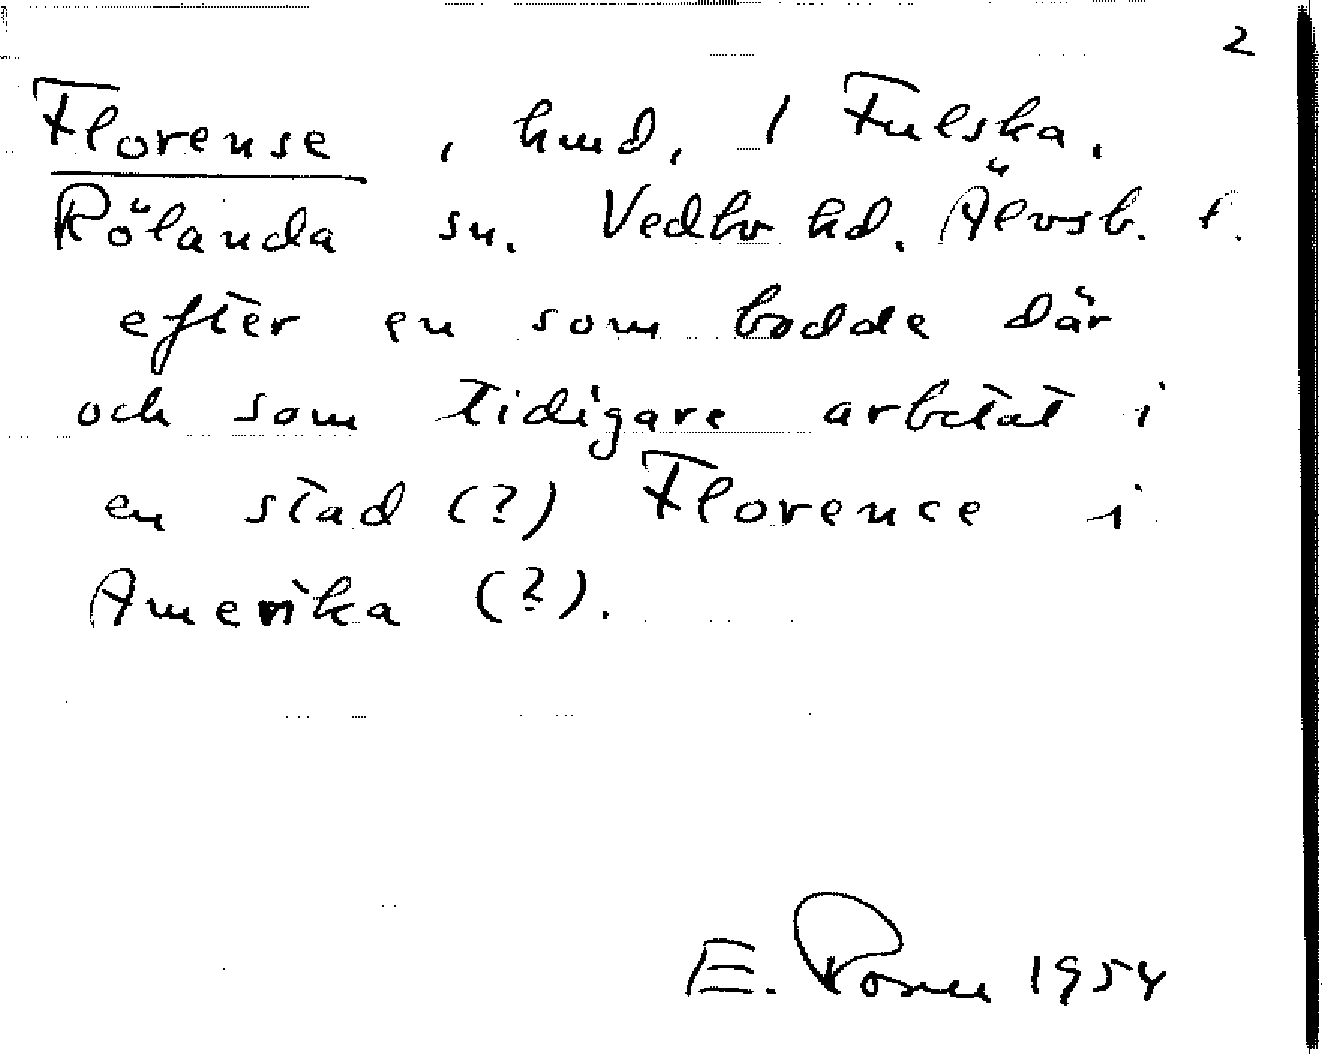 2
Florense, hmd, 1 Fulska,
Rölanda sn. Vedbo hd. Älvsb. l.
efter en som bodde där
och som tidigare arbetat i
en stad (?) Florence i
Amerika (?).
E. 1954